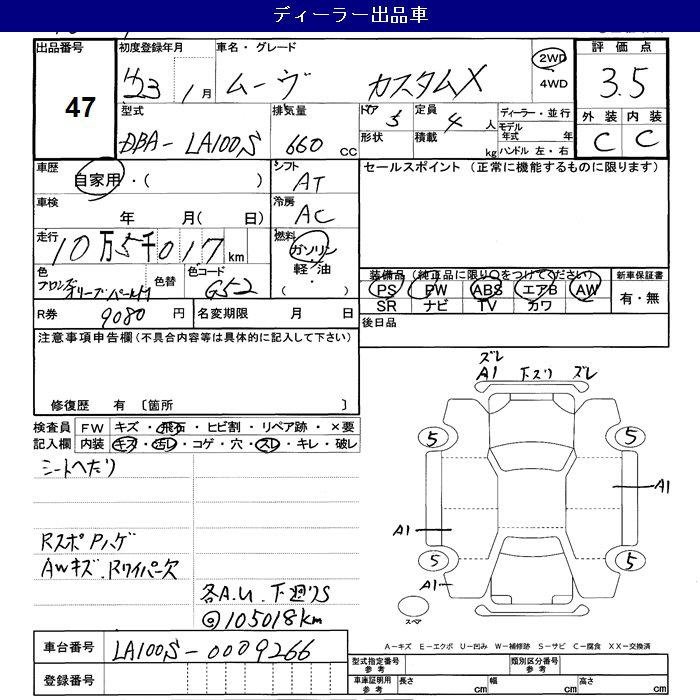 ディーラー出品車
出品番号 47
初度登録年月 H23年 1月
車名・グレード ムーヴ カスタムX
2WD
4WD
評価点 3.5
型式 DBA-LA100S
排気量 660 cc
ドア 5
定員 4 人
形状
積載 kg
ディーラー・並行
モデル年式 年
ハンドル 左・右
外装 C 内装 C
車歴 自家用・( )
シフト AT
セールスポイント (正常に機能するものに限ります)
車検 年 月( 日)
冷房 AC
走行 10万5千017 km
燃料 ガソリン
軽・油
・( )
色
色替
色コード G52
装備品 (純正品に限り○をつけてください)
PS PW ABS エアB AW
SR ナビ TV カワ
新車保証書
有・無
R券 9080 円
名変期限 月 日
後日品
注意事項申告欄(不具合内容等は具体的に記入して下さい)
修復歴 有 〔箇所 〕
検査員 FW キズ・飛石・ヒビ割・リペア跡・×要
記入欄 内装 キズ・汚レ・コゲ・穴・スレ・キレ・破レ
シートヘたり
RスポPハゲ
AWキズ、Rワイパー欠
各A.U. 下廻りS
@105018km
ズレ
A1 下スリ ズレ
5 5
A1
A1
5 5
A1
スペア
A-キズ E-エクボ U-凹み W-補修跡 S-サビ C-腐食 XX-交換済
車台番号 LA100S-0009266
登録番号
型式指定番号 参考
類別区分番号 参考
車庫証明用 参考
長さ cm 幅 cm 高さ cm